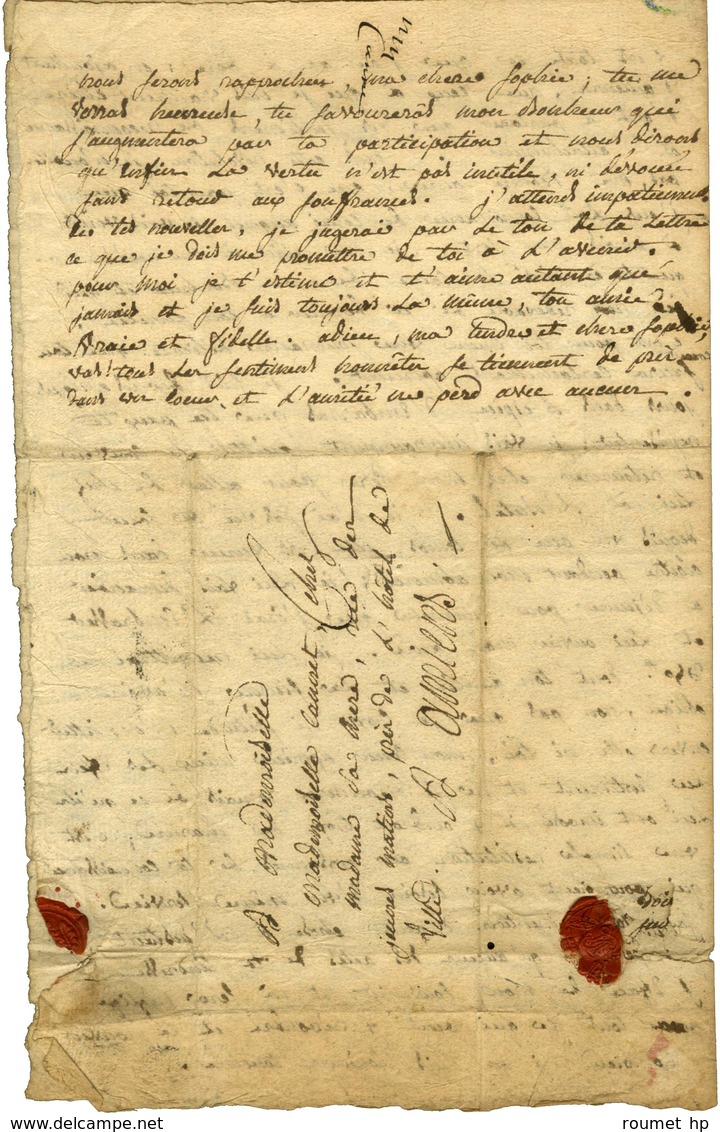 nous serons rapprochées, ma chere sophie; tu me
verras heureuse, tu savoureras mon bonheur qui
s'augmentera par ta participation et nous dirons
qu'enfin la vertu n'est pas inutile, ni devouée
sans retour aux souffrances. j'attends impatiemment
de tes nouvelles, je jugerai par le ton de ta lettre
ce que je dois me promettre de toi à l'avenir.
pour moi je t'estime et t'aime autant que
jamais et je suis toujours la même, ton amie
vraie et fidelle. adieu, ma tendre et chere sophie,
vas! tous les sentiments honnêtes se tiennent de près
dans un coeur, et l'amitié ne perd avec aucun.
A Mademoiselle
Mademoiselle Cannet, chez
madame sa mere, rue des
jeunes matins, près de l'hôtel de
Ville.
A Amiens
roumet hp